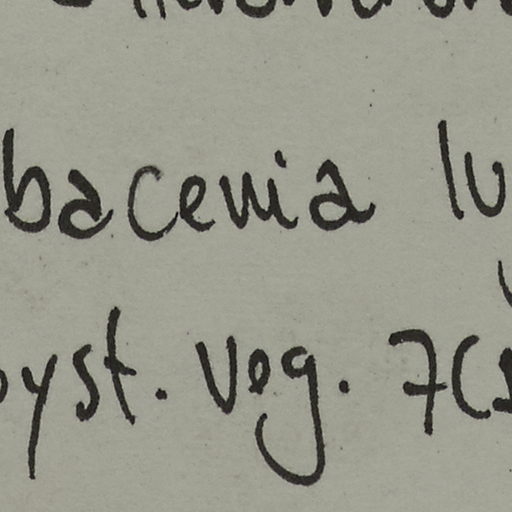 bacenia lu
syst. Veg. 7(1